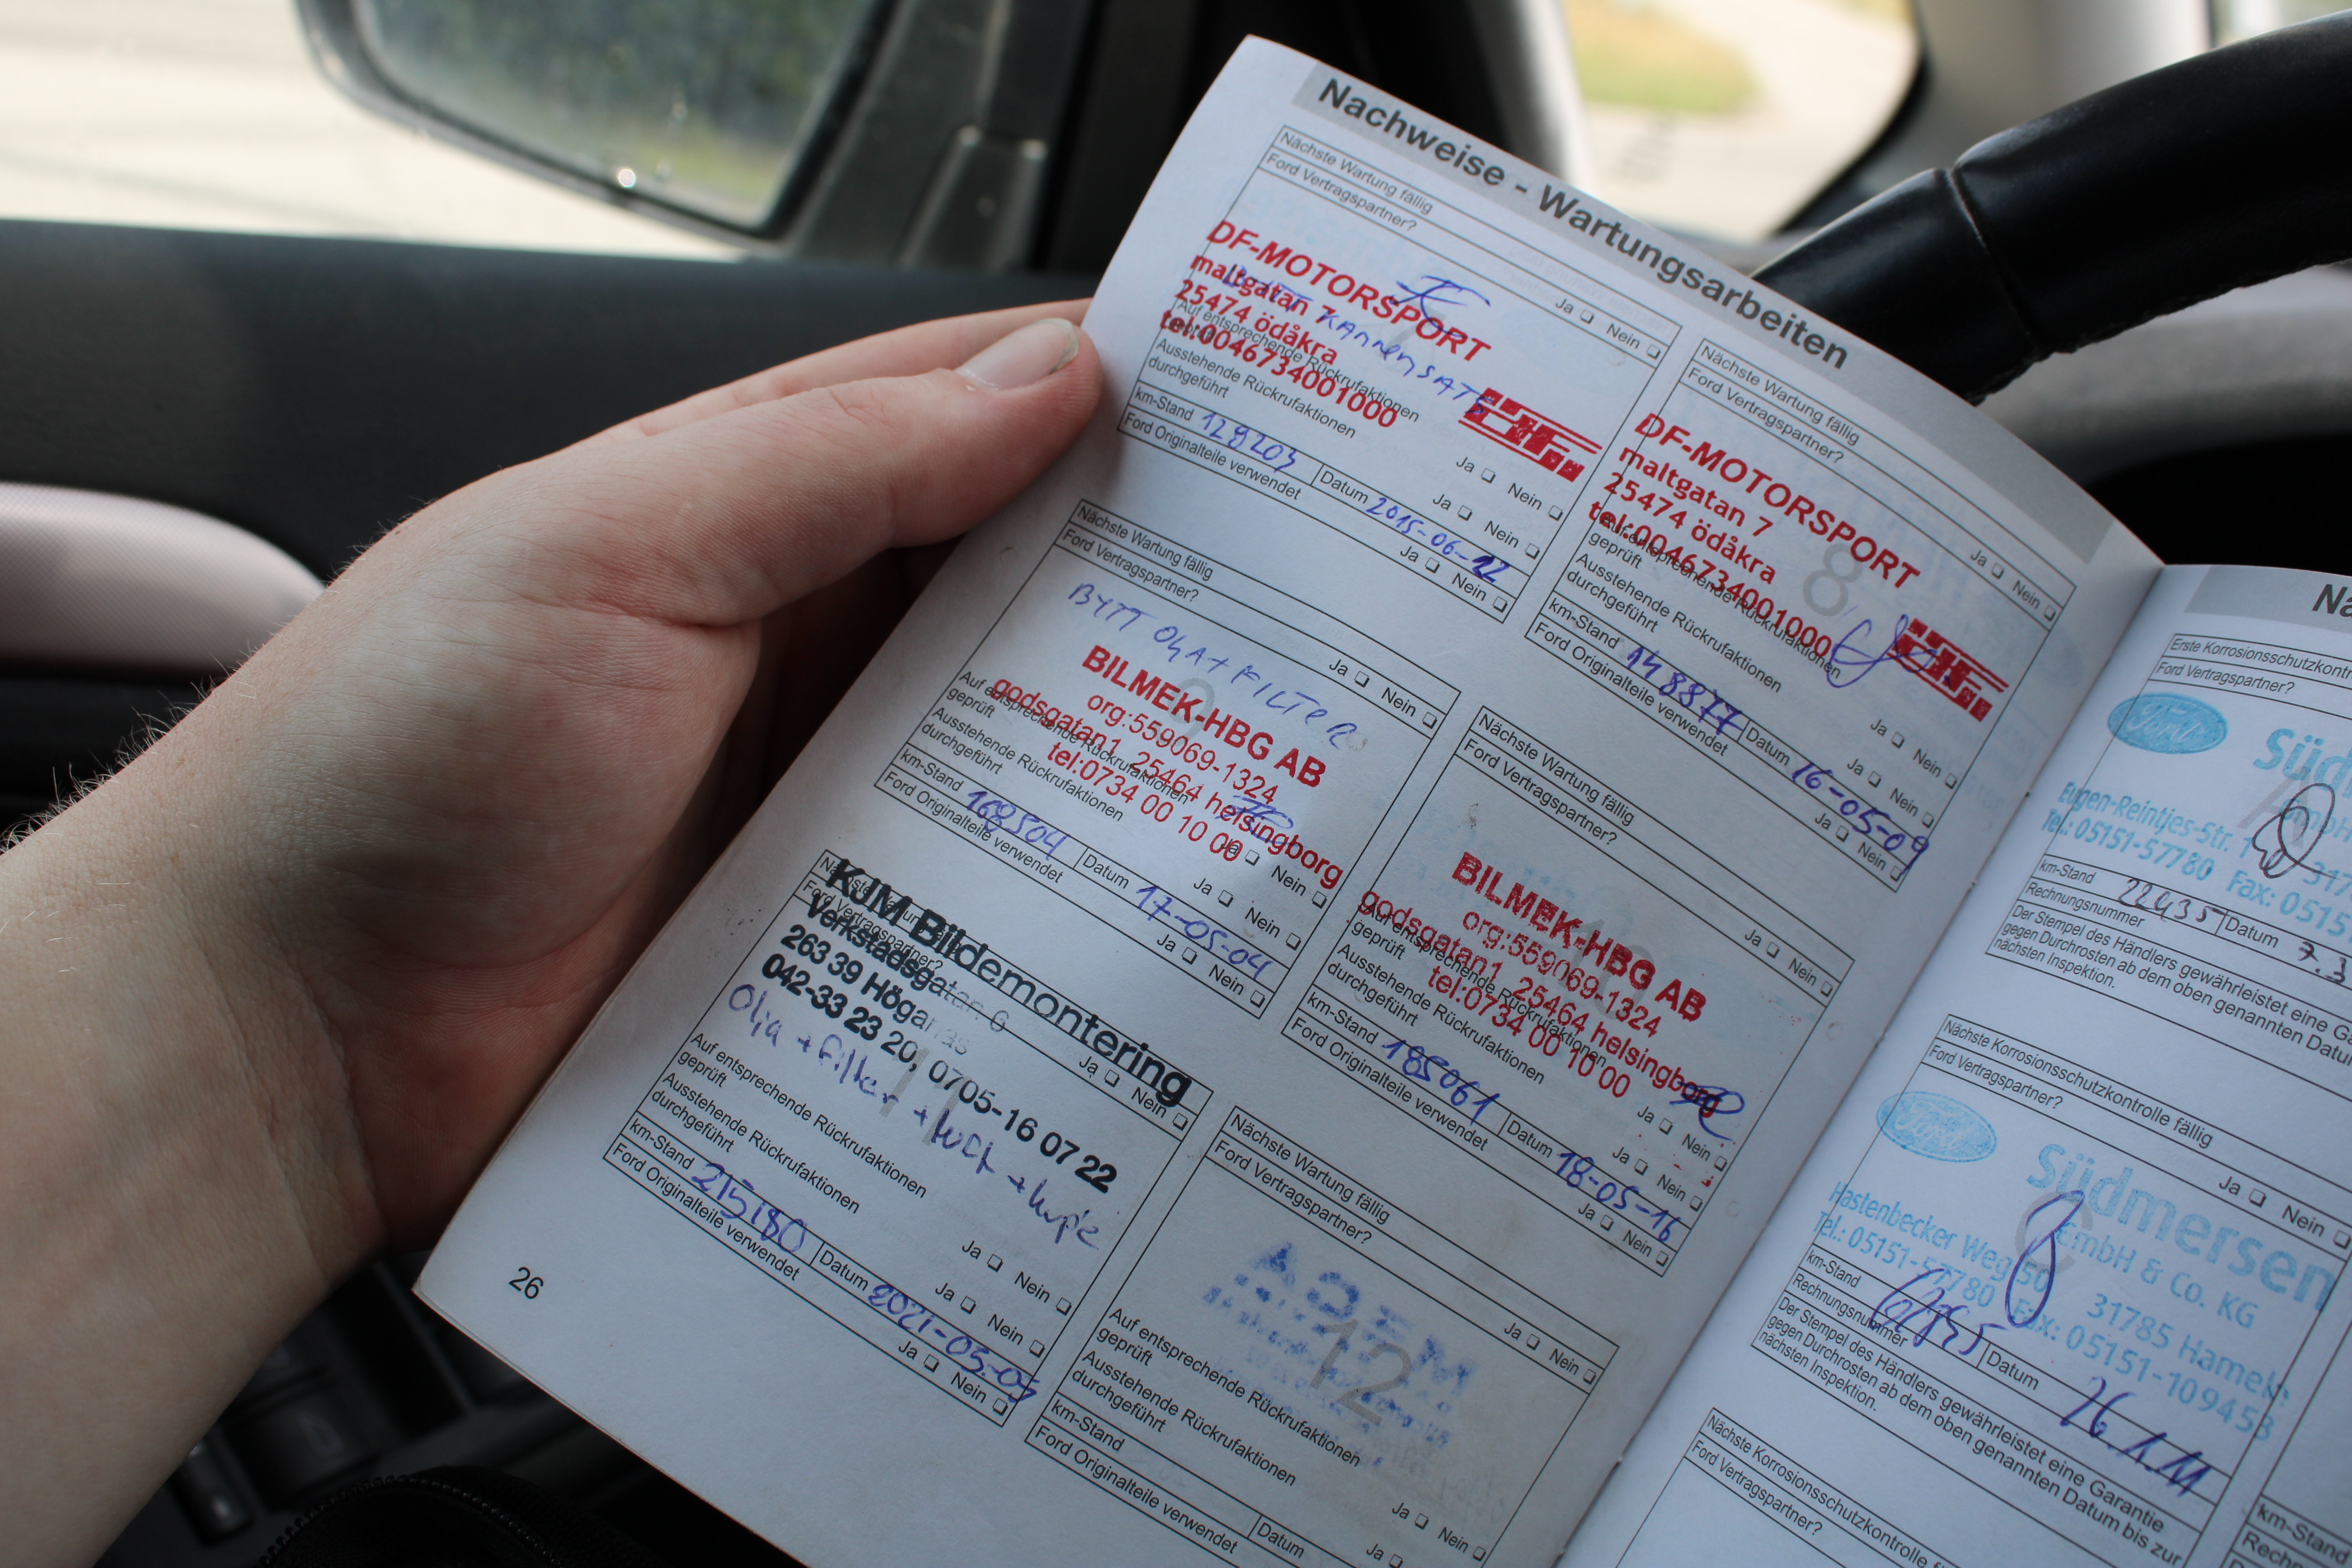 Nachweise - Wartungsarbeiten
Nächste Wartung fällig
Ford Vertragspartner?
Ja Nein
DF-MOTORSPORT
maltgatan 7
25474 ödåkra
tel:0046734001000
Auf entsprechende Rückrufaktionen
Ja Nein
Ausstehende Rückrufaktionen
durchgeführt
Ja Nein
km-Stand 129203 Datum 2015-06-12
Ford Originalteile verwendet
Ja Nein
Nächste Wartung fällig
Ford Vertragspartner?
Ja Nein
8
DF-MOTORSPORT
maltgatan 7
25474 ödåkra
tel:0046734001000
Auf entsprechende Rückrufaktionen
geprüft
Ja Nein
Ausstehende Rückrufaktionen
durchgeführt
Ja Nein
km-Stand 148877 Datum 16-05-09
Ford Originalteile verwendet
Ja Nein
Nächste Wartung fällig
Ford Vertragspartner?
Ja Nein
BYTT OLJA + FILTER
9
BILMEK-HBG AB
org:559069-1324
godsgatan1, 25464 helsingborg
tel:0734 00 10 00
Auf entsprechende Rückrufaktionen
geprüft
Ja Nein
Ausstehende Rückrufaktionen
durchgeführt
Ja Nein
km-Stand 168504 Datum 17-05-04
Ford Originalteile verwendet
Ja Nein
Nächste Wartung fällig
Ford Vertragspartner?
Ja Nein
BILMEK-HBG AB
org:559069-1324
godsgatan1, 25464 helsingborg
tel:0734 00 10 00
Auf entsprechende Rückrufaktionen
geprüft
Ja Nein
Ausstehende Rückrufaktionen
durchgeführt
Ja Nein
km-Stand 185061 Datum 18-05-16
Ford Originalteile verwendet
Ja Nein
Nächste Wartung fällig
Ford Vertragspartner?
Ja Nein
KJM Bildemontering
Verkstadsgatan 6
263 39 Höganäs
042-33 23 20, 0705-16 07 22
Olja + filter + luft + kupé
Auf entsprechende Rückrufaktionen
geprüft
Ja Nein
Ausstehende Rückrufaktionen
durchgeführt
Ja Nein
km-Stand 215180 Datum 2021-05-07
Ford Originalteile verwendet
Ja Nein
Nächste Wartung fällig
Ford Vertragspartner?
Ja Nein
12
Auf entsprechende Rückrufaktionen
geprüft
Ja Nein
Ausstehende Rückrufaktionen
durchgeführt
Ja
km-Stand Datum
Ford Originalteile verwendet
26
Na
Erste Korrosionsschutzkontr
Ford Vertragspartner?
Ford
Süd
Eugen-Reintjes-Str. 1
Tel.: 05151-57780 Fax: 0515
km-Stand 22435 Datum 7.3
Rechnungsnummer
Der Stempel des Händlers gewährleistet eine Ga
gegen Durchrosten ab dem oben genannten Datu
nächsten Inspektion.
Nächste Korrosionsschutzkontrolle fällig
Ford Vertragspartner?
Ja Nein
Ford
Südmersen
GmbH & Co. KG
Hastenbecker Weg 50 31785 Hameln
Tel.: 05151-57780 Fax: 05151-109453
km-Stand
Rechnungsnummer
Datum 26.1.11
Der Stempel des Händlers gewährleistet eine Garantie
gegen Durchrosten ab dem oben genannten Datum bis zur
nächsten Inspektion.
Nächste Korrosionsschutzkontrolle f
Ford Vertragspartner?
km-Stan
Rech